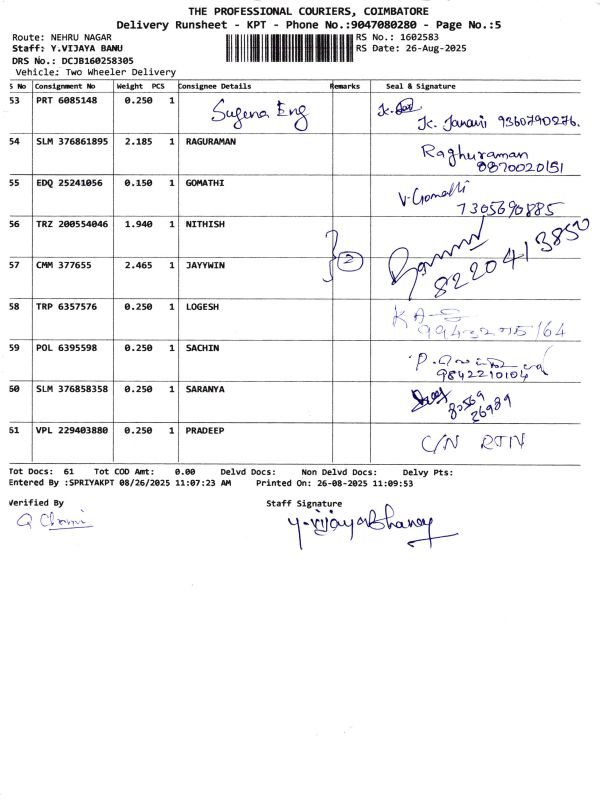 THE PROFESSIONAL COURIERS, COIMBATORE
Delivery Runsheet - KPT - Phone No.:9047080280 - Page No.:5
Route: NEHRU NAGAR
RS No.: 1602583
Staff: Y.VIJAYA BANU
RS Date: 26-Aug-2025
DRS No.: DCJB160258305
Vehicle: Two Wheeler Delivery
S No Consignment No Weight PCS Consignee Details Remarks Seal & Signature
53 PRT 6085148 0.250 1 Sugena Eng K. Janani 9360790276.
54 SLM 376861895 2.185 1 RAGURAMAN Raghuraman
8870020151
55 EDQ 25241056 0.150 1 GOMATHI V. Gomathi
7305690885
56 TRZ 200554046 1.940 1 NITHISH
2
57 CMM 377655 2.465 1 JAYYWIN 8220413850
58 TRP 6357576 0.250 1 LOGESH
59 POL 6395598 0.250 1 SACHIN
9842210104
60 SLM 376858358 0.250 1 SARANYA
80569
26989
61 VPL 229403880 0.250 1 PRADEEP C/N RTN
Tot Docs: 61 Tot COD Amt: 0.00 Delvd Docs: Non Delvd Docs: Delvy Pts:
Entered By :SPRIYAKPT 08/26/2025 11:07:23 AM Printed On: 26-08-2025 11:09:53
Verified By Staff Signature